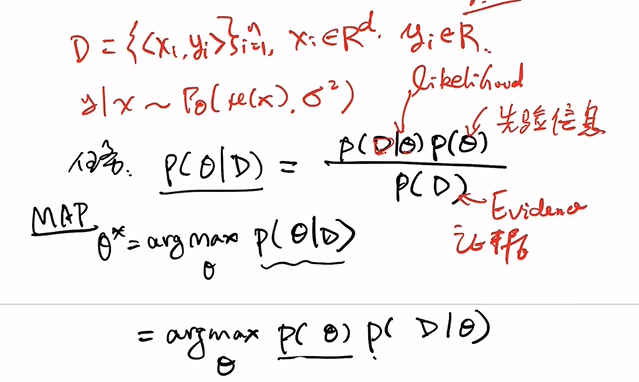 D = {<xᵢ, yᵢ>}ⁿᵢ₌₁, xᵢ ∈ Rᵈ. yᵢ ∈ R.
y|x ~ Pθ(μ(x), σ²)
likelihood
先验信息
任务. P(θ|D) = p(D|θ) p(θ) / P(D)
Evidence
证据
MAP
θ* = argmax_θ P(θ|D)
= argmax_θ P(θ) P(D|θ)